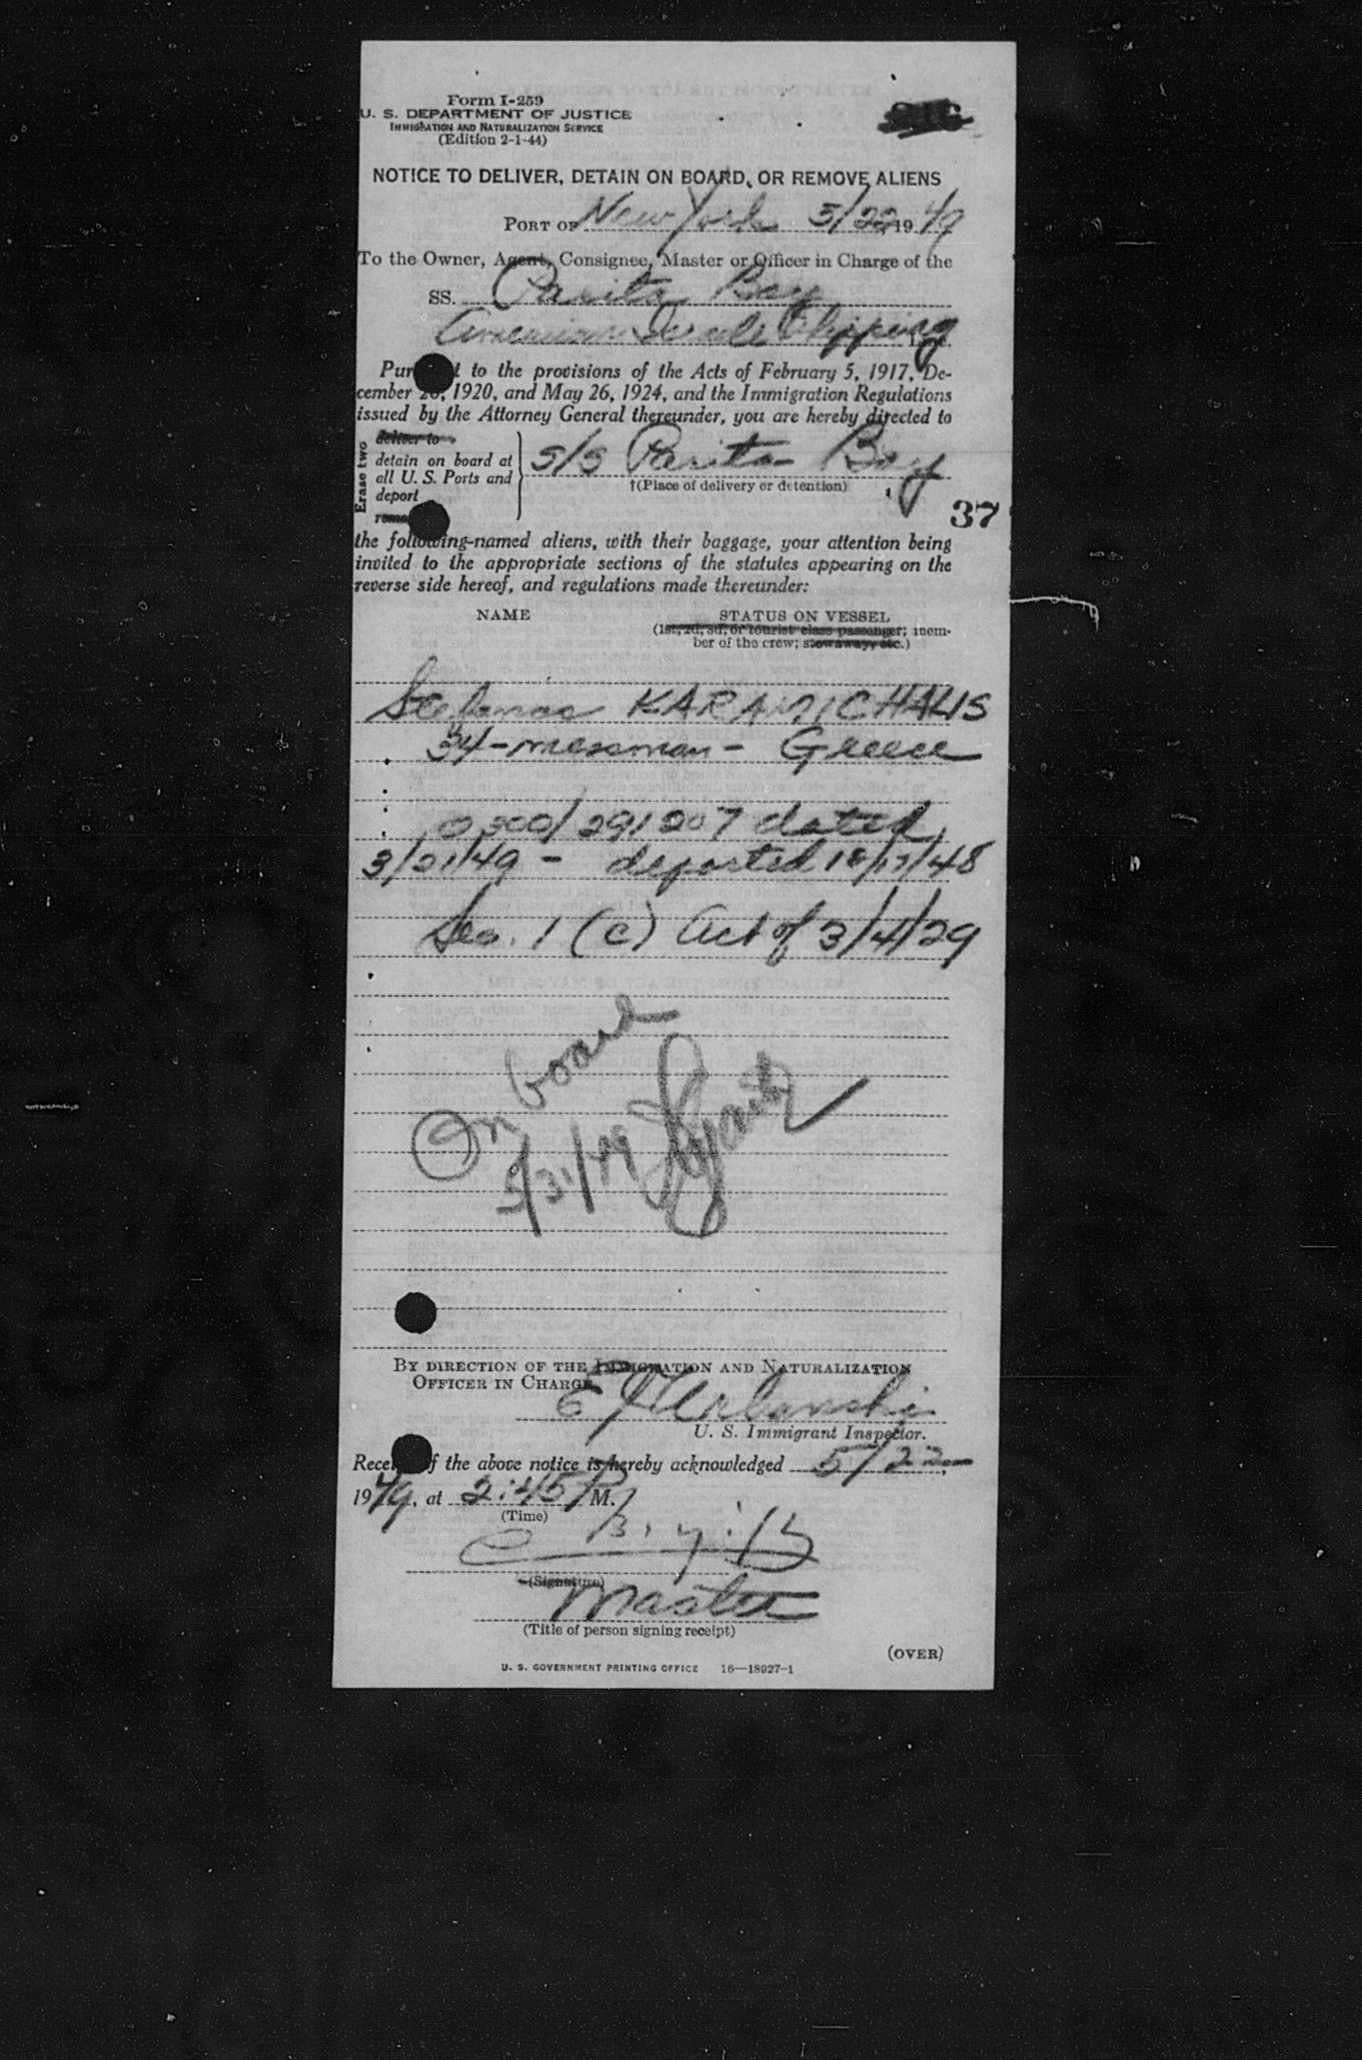 Form I-259
U. S. DEPARTMENT OF JUSTICE
IMMIGRATION AND NATURALIZATION SERVICE
(Edition 2-1-44)
NOTICE TO DELIVER, DETAIN ON BOARD, OR REMOVE ALIENS
PORT OF New York 5/22 19 49
To the Owner, Agent, Consignee, Master or Officer in Charge of the
SS. Parita Bay
American Shipping
to the provisions of the Acts of February 5, 1917, De-
cember 1920, and May 26, 1924, and the Immigration Regulations
issued by the Attorney General thereunder, you are hereby directed to
Erase two
deliver to
detain on board at
all U. S. Ports and
deport
S/S Parita Bay
†(Place of delivery or detention)
37
the following-named aliens, with their baggage, your attention being
invited to the appropriate sections of the statutes appearing on the
reverse side hereof, and regulations made thereunder:
NAME STATUS ON VESSEL
(1st, 2d, 3d, or tourist class passenger; mem-
ber of the crew; stowaway, etc.)
Stefanos KARAMICHALIS
34 - messman - Greece
0300/291207 dated
3/21/49 - deported
Sec. 1 (c) Act of 3/4/29
On board
5/31/49
BY DIRECTION OF THE IMMIGRATION AND NATURALIZATION
OFFICER IN CHARGE
E J Urbanski
U. S. Immigrant Inspector.
of the above notice is hereby acknowledged 5/22
1949, at 2:45 P M.
(Time)
(Signature)
Master
(Title of person signing receipt)
(OVER)
U. S. GOVERNMENT PRINTING OFFICE 16—18927-1